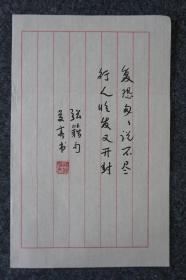 复恐匆匆说不尽
行人临发又开封
张籍句